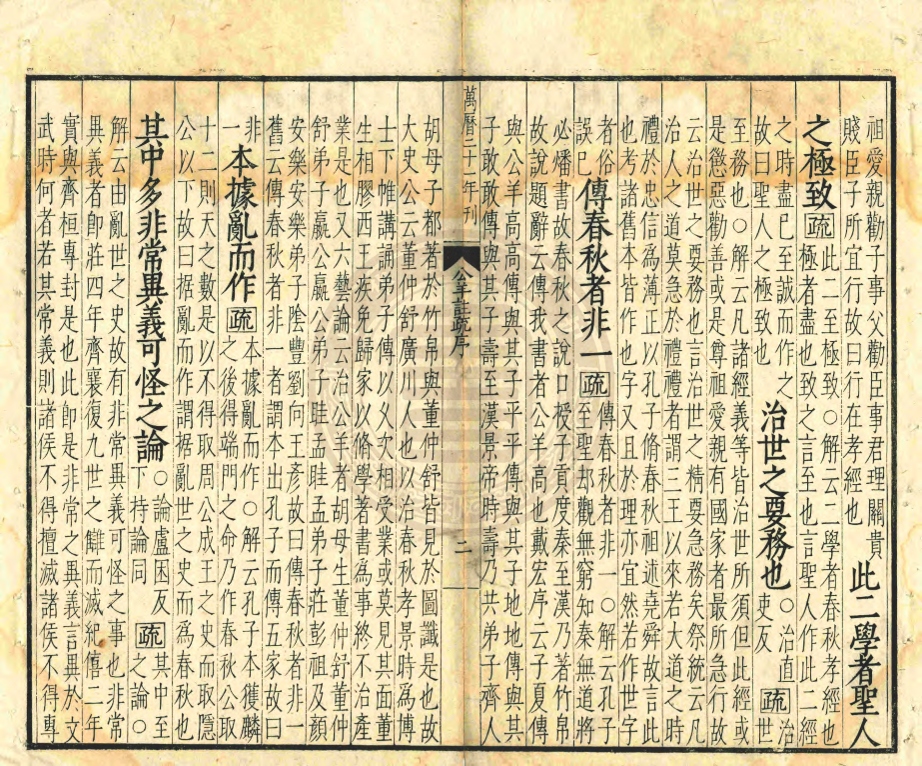 祖愛親勸子事父勸臣事君理關貴
賤臣子所宜行故曰行在孝經也 此二學者聖人
之極致 疏 此二至極致○解云二學者春秋孝經也
極者盡也致之言至也言聖人作此二經
之時盡已至誠而作之
故曰聖人之極致也 治世之要務也 ○治直
吏反 疏 治
世
至務也○解云凡諸經義等皆治世所須但此經或
是懲惡勸善或是尊祖愛親有國家者最所急行故
云治世之要務也言治世之精要急務矣祭統云凡
治人之道莫急於禮禮者謂三王以來若大道之時
禮於忠信爲薄正以孔子脩春秋祖述堯舜故言此
也考諸舊本皆作也字又且於理亦宜然若作世字
者俗
誤已 傳春秋者非一 疏 傳春秋者非一○解云孔子
至聖却觀無窮知秦無道將
必燔書故春秋之說口授子貢度秦至漢乃著竹帛
故說題辭云傳我書者公羊高也戴宏序云子夏傳
與公羊高高傳與其子平平傳與其子地地傳與其
子敢敢傳與其子壽至漢景帝時壽乃共弟子齊人
萬曆二十一年刊
公羊註疏序
二
胡母子都著於竹帛與董仲舒皆見於圖讖是也故
大史公云董仲舒廣川人也以治春秋孝景時爲博
士下帷講誦弟子傳以久次相受業或莫見其面董
生相膠西王疾免歸家以脩學著書爲事終不治產
業是也又六藝論云治公羊者胡母生董仲舒董仲
舒弟子嬴公嬴公弟子眭孟眭孟弟子莊彭祖及顏
安樂安樂弟子陰豐劉向王彥故曰傳春秋者非一
舊云傳春秋者非一者謂本出孔子而傳五家故曰
非
一 本據亂而作 疏 本據亂而作○解云孔子本獲麟
之後得端門之命乃作春秋公取
十二則天之數是以不得取周公成王之史而取隱
公以下故曰据亂而作謂据亂世之史而爲春秋也
其中多非常異義可怪之論 ○論盧困反
下持論同 疏 其中至
之論○
解云由亂世之史故有非常異義可怪之事也非常
異義者卽莊四年齊襄復九世之讎而滅紀僖二年
實與齊桓專封是也此卽是非常之異義言異於文
武時何者若其常義則諸侯不得擅滅諸侯不得專